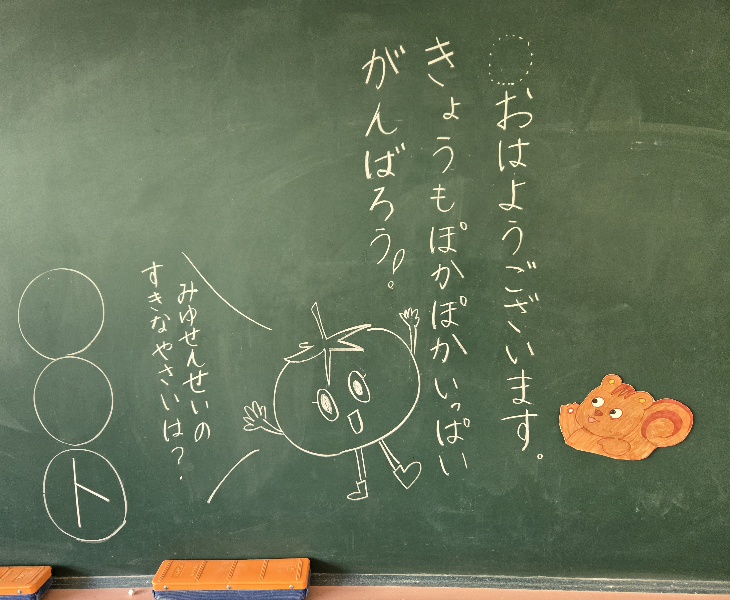 おはようございます。
きょうもぽかぽかいっぱい
がんばろう!。
みゆせんせいの
すきなやさいは？
ト